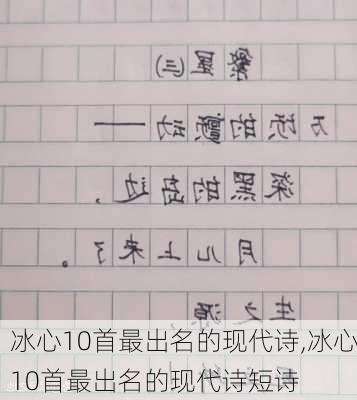 繁星(三)
万顷的颤动——
深黑的岛边,
月儿上来了。
生之源
冰心10首最出名的现代诗,冰心
10首最出名的现代诗短诗